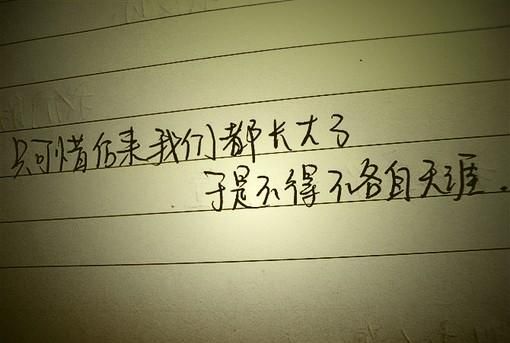 只可惜后来我们都长大了
于是不得不各自天涯.